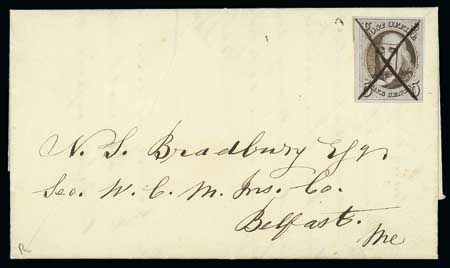 POST OFFICE
FIVE CENTS
5 5
N. S. Bradbury Esq.
Sec. W. C. M. Ins. Co.
Belfast.
Me
R